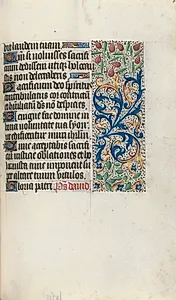 bit laudem tuam
Qm si voluisses sacrifi
cium dedissem utiqz holocau
stis non delectaberis
Sacrificium deo spiritus
contribulatus cor contritu
et humiliatu ds no despicies
Benigne fac domine in
bona voluntate tua syon
ut edificentur muri ihrlm
Tunc acceptabis sacrifi
cium iusticie oblationes et ho
locausta tunc imponent su
per altare tuum vitulos
Gloria patri Ps david